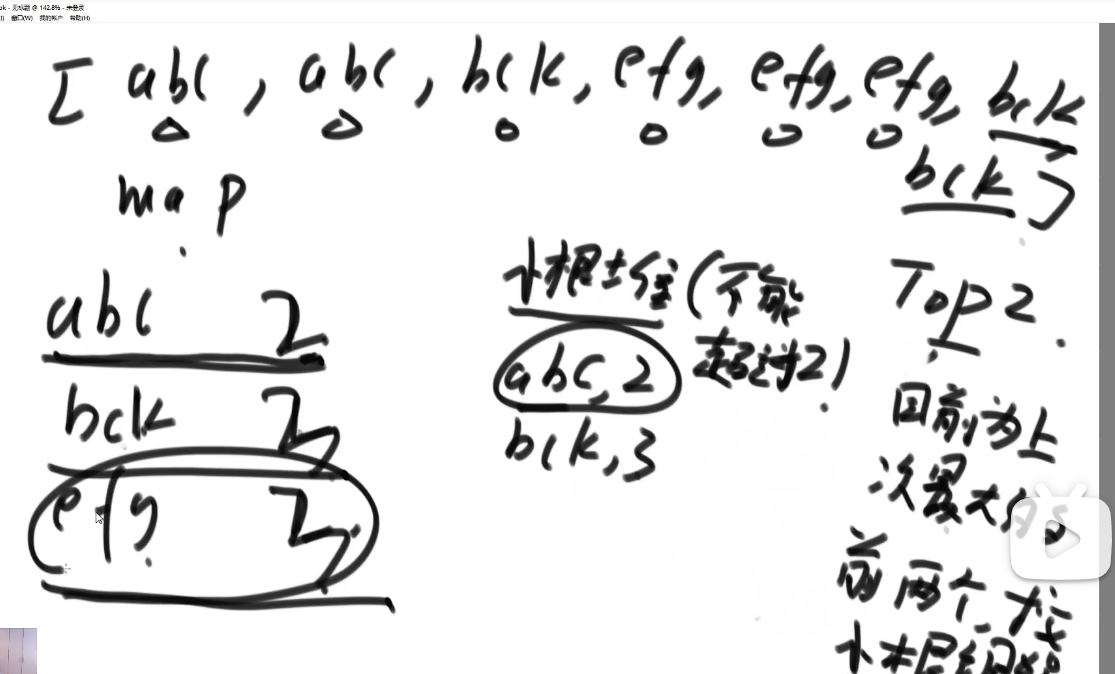 ok - 无标题 @ 142.8% - 未登录
窗口(W) 我的帐户 帮助(H)
[ abc , abc , bck, efg, efg, efg, bck
bck ]
map
abc 2
bck 3
efg 3
小根堆(不能
超过2)
abc, 2
bck, 3
Top 2
目前为止
次最大的
前两个
小根